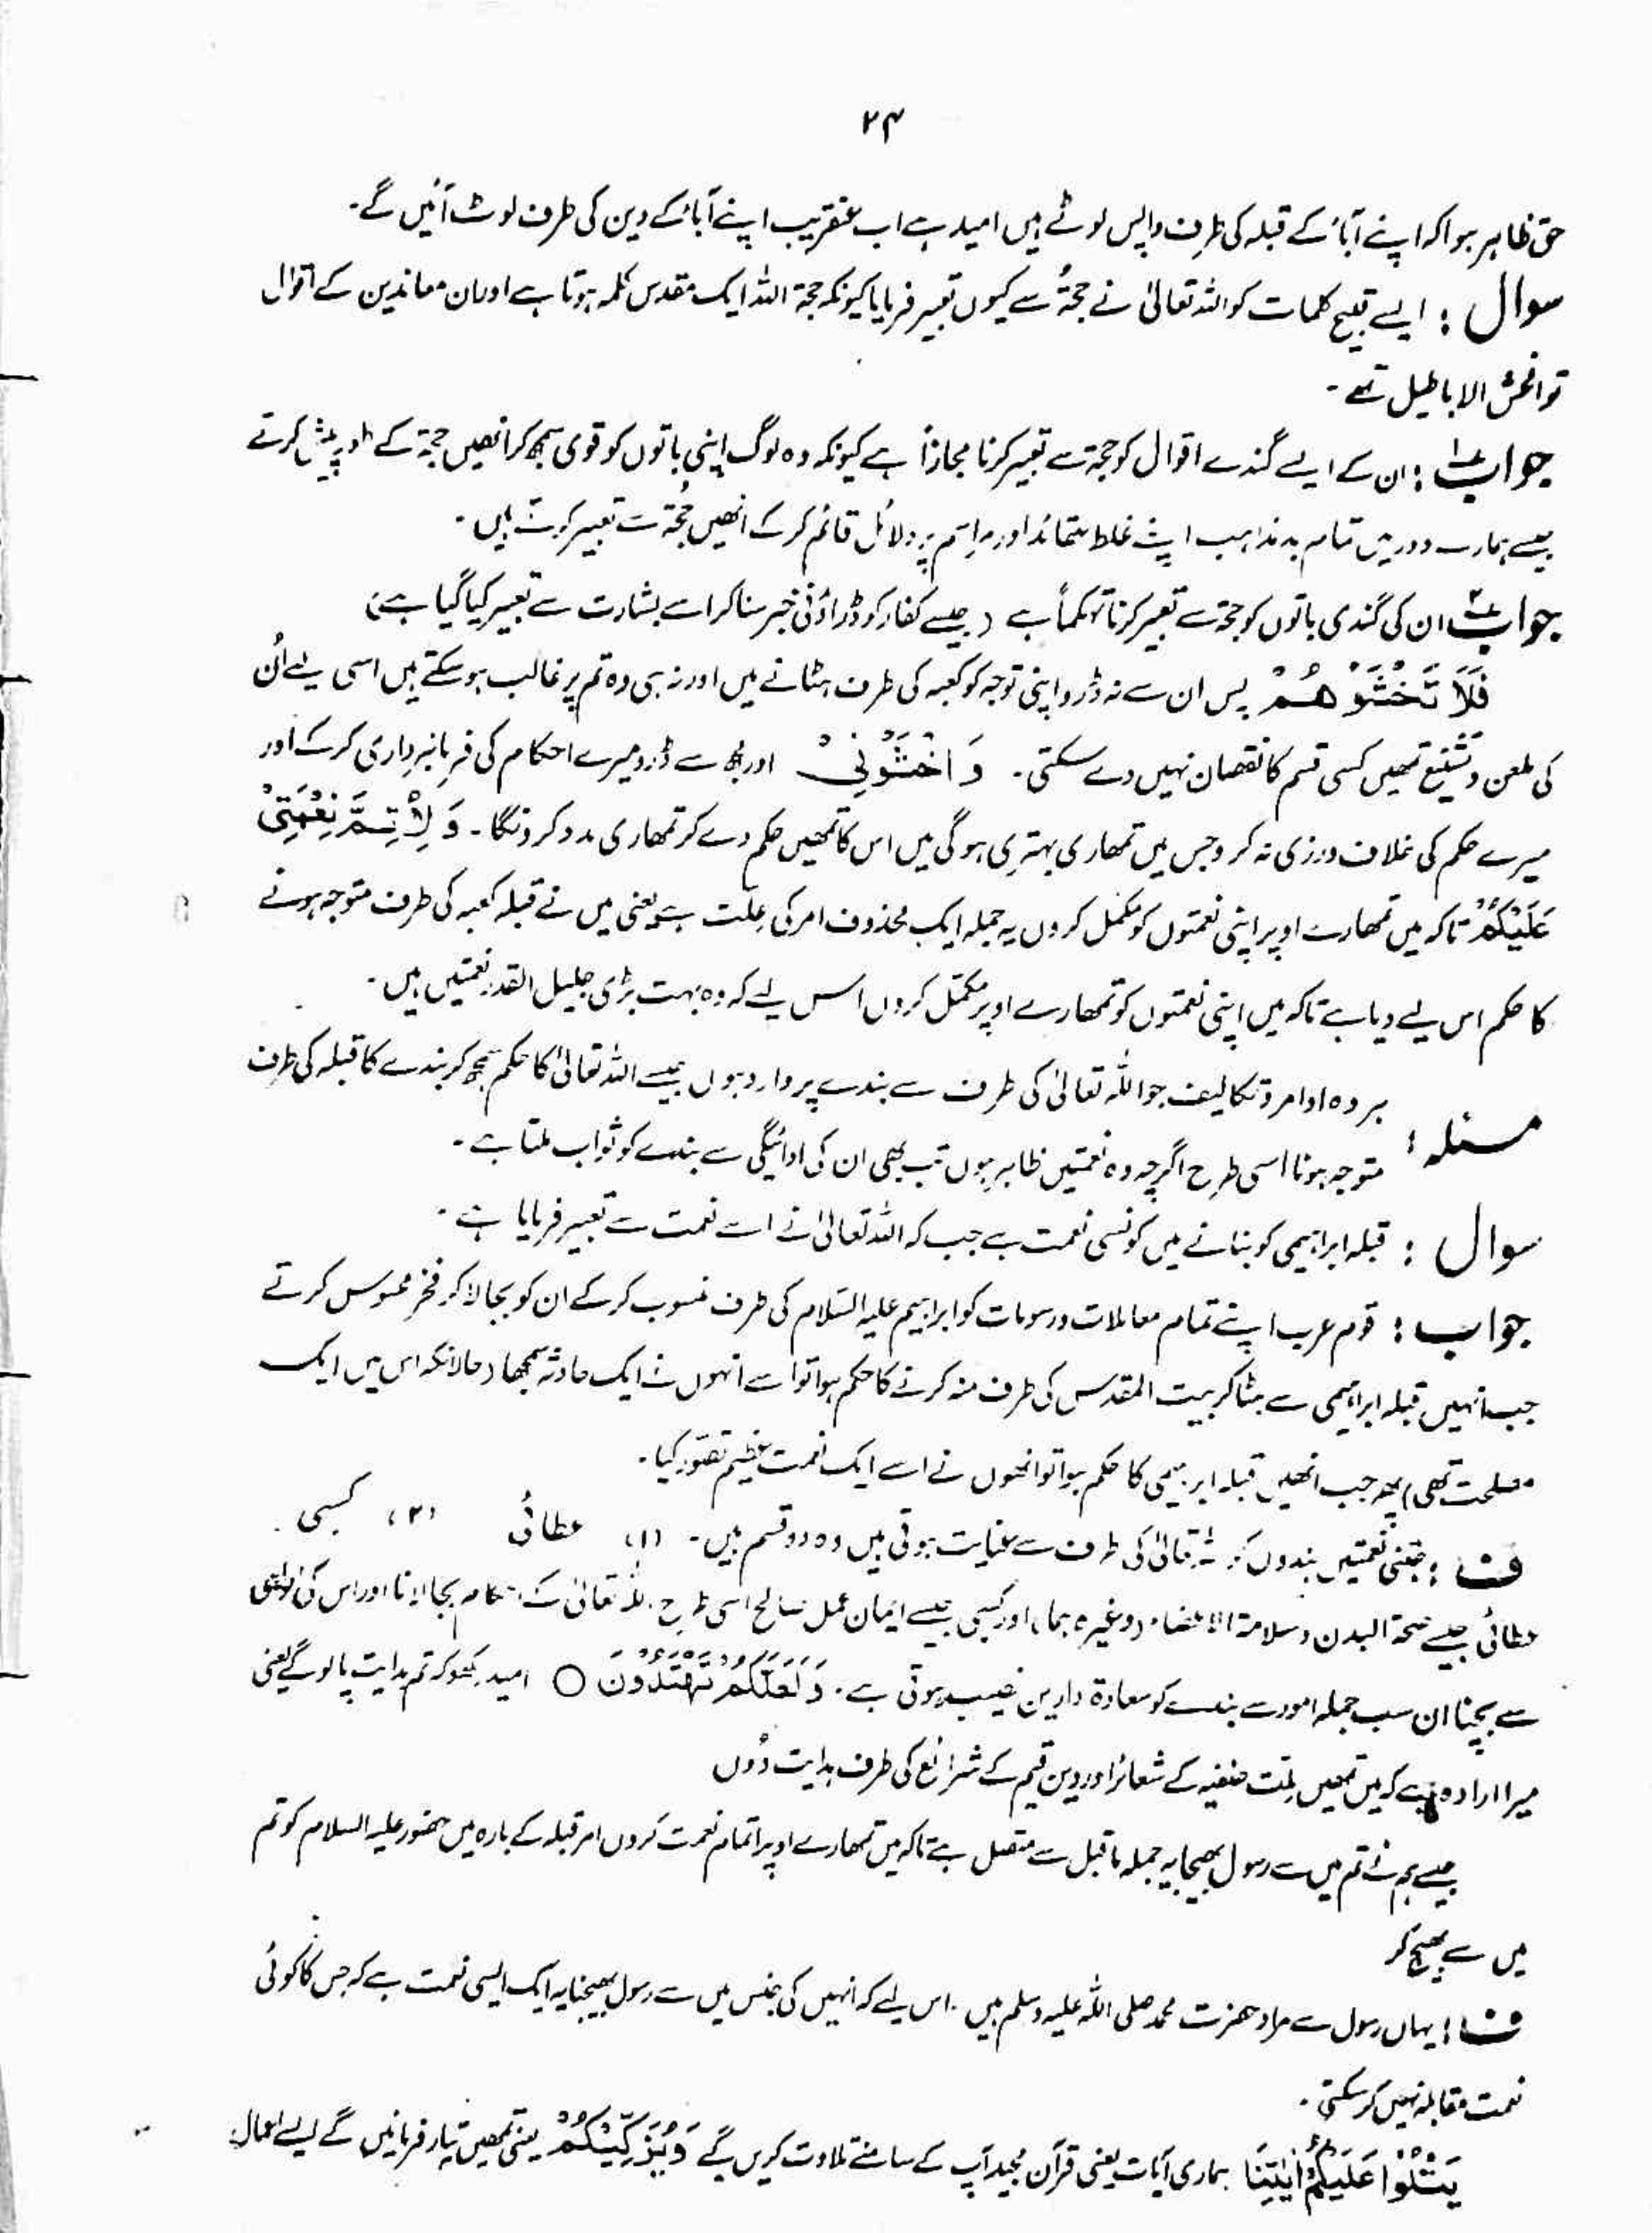 ۲۴
حق ظاہر ہوا کہ اپنے آباؑ کے قبلہ کی طرف واپس لوٹے ہیں امید ہے اب عنقریب اپنے آباؑ کے دین کی طرف لوٹ آئیں گے۔
سوال : ایسے قبیح کلمات کو اللہ تعالیٰ نے حجۃٌ سے کیوں تعبیر فرمایا کیونکہ حجۃ اللہ ایک مقدس کلمہ ہوتا ہے اور ان معاندین کے اقوال
تو افحش الاباطیل تھے۔
جواب ۱ : ان کے ایسے گندے اقوال کو حجۃ سے تعبیر کرنا مجازاً ہے کیونکہ وہ لوگ اپنی باتوں کو قوی سمجھ کر انھیں حجۃ کے طور پر پیش کرتے
جیسے ہمارے دور میں تمام بد مذاہب اپنے غلط عقائد اور مراسم پر دلائل قائم کر کے انھیں حُجّۃ سے تعبیر کرتے ہیں۔
جواب ۲ ان کی گندی باتوں کو حجۃ سے تعبیر کرنا تہکماً ہے (جیسے کفار کو ڈراؤنی خبر سنا کر اسے بشارت سے تعبیر کیا گیا ہے)
فَلَا تَخْشَوْهُمْ پس ان سے نہ ڈرو اپنی توجہ کو کعبہ کی طرف ہٹانے میں اور نہ ہی وہ تم پر غالب ہو سکتے ہیں اسی لیے اُن
کی طعن و تشنیع تمھیں کسی قسم کا نقصان نہیں دے سکتی۔ وَاخْشَوْنِيْ اور مجھ سے ڈرو میرے احکام کی فرمانبرداری کر کے اور
میرے حکم کی خلاف ورزی نہ کرو جس میں تمھاری بہتری ہوگی میں اس کا تمھیں حکم دے کر تمھاری مدد کرونگا۔ وَلِاُتِمَّ نِعْمَتِیْ
عَلَیْكُمْ تاکہ میں تمھارے اوپر اپنی نعمتوں کو مکمل کروں یہ جملہ ایک محذوف امر کی علّت ہے یعنی میں نے قبلہ کعبہ کی طرف متوجہ ہونے
کا حکم اس لیے دیا ہے تاکہ میں اپنی نعمتوں کو تمھارے اوپر مکمّل کروں اس لیے کہ وہ بہت بڑی جلیل القدر نعمتیں ہیں۔
مسئلہ : ہر وہ اوامر و تکالیف جو اللہ تعالیٰ کی طرف سے بندے پر وارد ہوں جیسے اللہ تعالیٰ کا حکم سمجھ کر بندے کا قبلہ کی طرف
متوجہ ہونا اسی طرح اگرچہ وہ نعمتیں ظاہر ہوں تب بھی ان کی ادائیگی سے بندے کو ثواب ملتا ہے۔
سوال : قبلہ ابراہیمی کو بنانے میں کونسی نعمت ہے جب کہ اللہ تعالیٰ نے اسے نعمت سے تعبیر فرمایا ہے۔
جواب : قوم عرب اپنے تمام معاملات و رسومات کو ابراہیم علیہ السّلام کی طرف منسوب کر کے ان کو بجا لا کر فخر محسوس کرتے
جب انہیں قبلہ ابراہیمی سے ہٹا کر بیت المقدس کی طرف منہ کرنے کا حکم ہوا تو اسے انہوں نے ایک حادثہ سمجھا (حالانکہ اس میں ایک
مصلحت تھی) پھر جب انھیں قبلہ ابراہیمی کا حکم ہوا تو انھوں نے اسے ایک نعمت عظیم تصوّر کیا۔
ف : جتنی نعمتیں بندوں کو اللہ تعالیٰ کی طرف سے عنایت ہوتی ہیں وہ دو قسم ہیں۔ (۱) عطائی (۲) کسبی
عطائی جیسے صحۃ البدن و سلامۃ الاعضاء (وغیرہ ہما) اور کسبی جیسے ایمان عمل صالح اسی طرح اللہ تعالیٰ کے احکام بجا لانا اور اس کی نواہی
سے بچنا ان سب جملہ امور سے بندے کو سعادۃ دارین نصیب ہوتی ہے۔ وَلَعَلَّكُمْ تَهْتَدُوْنَ ○ امید رکھو کہ تم ہدایت پا لو گے یعنی
میرا ارادہ ہے کہ میں تمھیں ملّت حنفیہ کے شعائر اور دین قیم کے شرائع کی طرف ہدایت دُوں
جیسے ہم نے تم میں سے رسول بھیجا یہ جملہ ماقبل سے متصل ہے تاکہ میں تمھارے اوپر اتمام نعمت کروں امر قبلہ کے بارہ میں حضور علیہ السلام کو تم
میں سے بھیج کر
ف : یہاں رسول سے مراد حضرت محمد صلی اللہ علیہ وسلم ہیں۔ اس لیے کہ انہیں کی جنس میں سے رسول بھیجنا یہ ایک ایسی نعمت ہے کہ جس کا کوئی
نعمت مقابلہ نہیں کر سکتی۔
یَتْلُوْا عَلَیْكُمْ اٰیٰتِنَا ہماری آیات یعنی قرآن مجید آپ کے سامنے تلاوت کریں گے وَیُزَكِّیْكُمْ یعنی تمھیں پاک فرمائیں گے ایسے اعمال